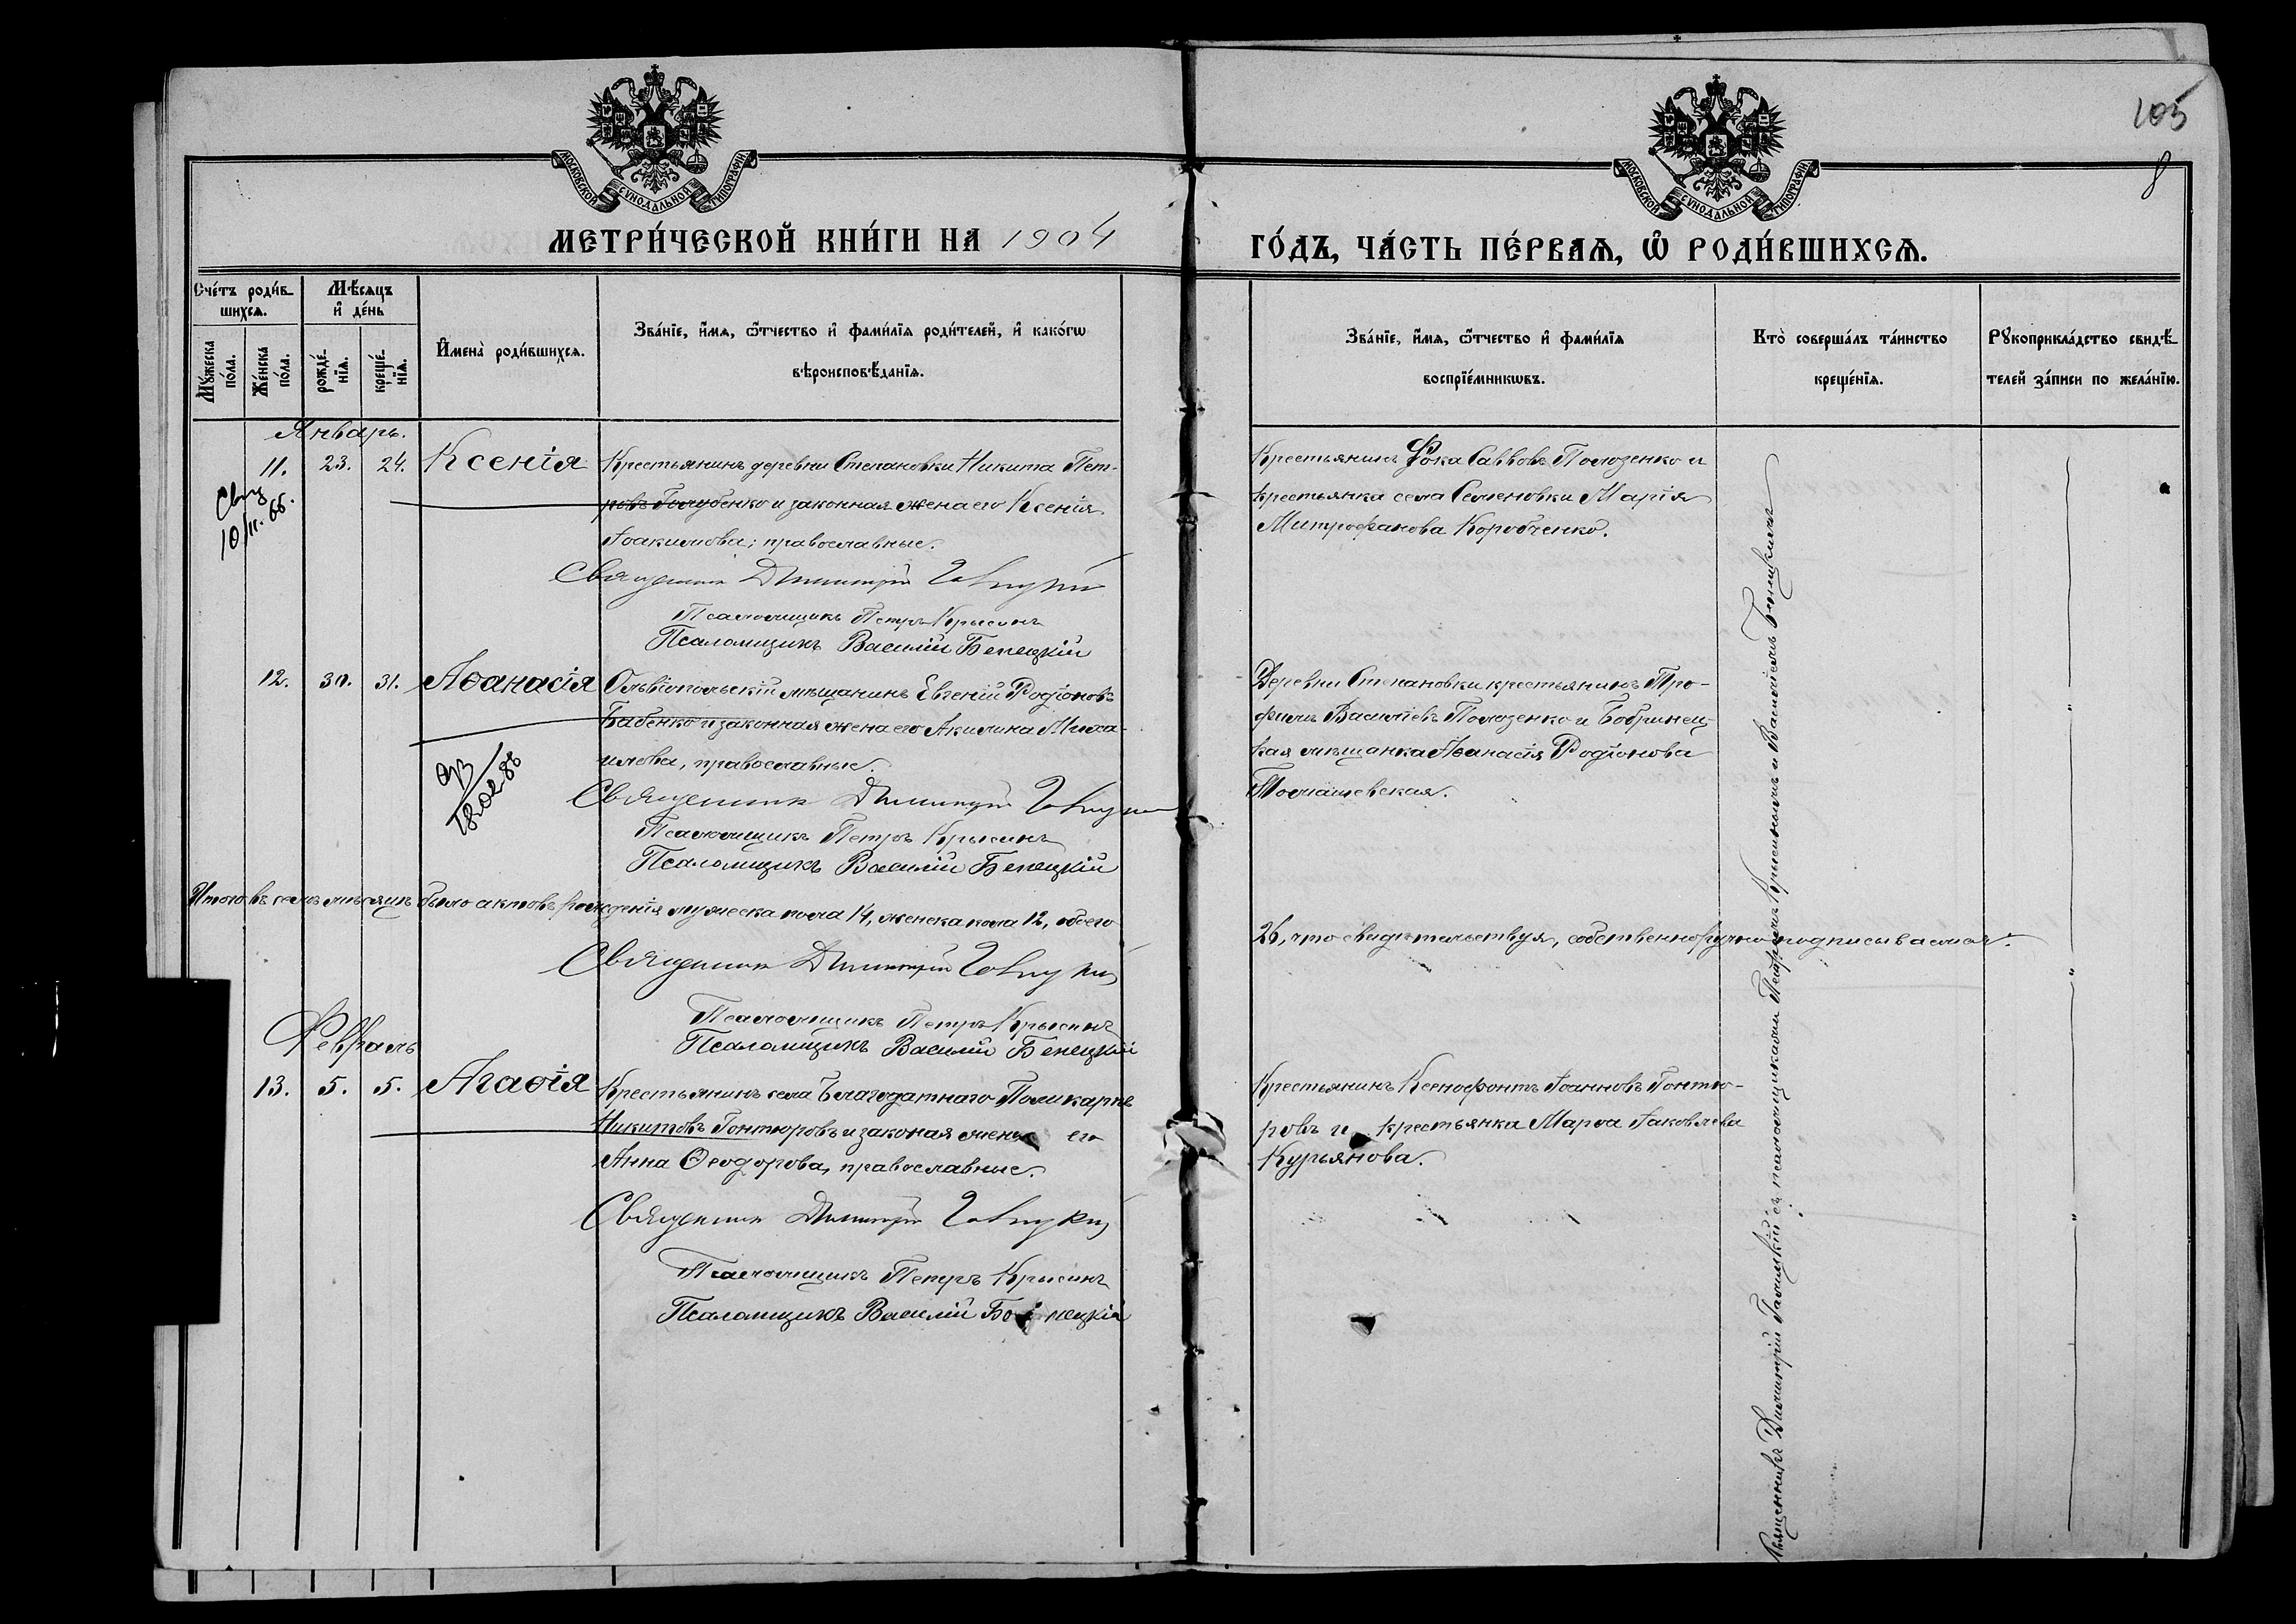 105
8
МОСКОВСКОЙ СѴНОДАЛЬНОЙ ТИПОГРАФІИ.
МОСКОВСКОЙ СѴНОДАЛЬНОЙ ТИПОГРАФІИ.
МЕТРИ́ЧЕСКОЙ КНИ́ГИ НА 1904
ГО́ДЪ, ЧА́СТЬ ПЕ́РВАѦ, Ѽ РОДИ́ВШИХСѦ.
Сче́тъ роди́в-
шихсѧ.
Мѣ́сѧцъ
и҆ де́нь
Мꙋ́жеска по́ла.
Же́нска по́ла.
рожде́-нїѧ.
креще́-нїѧ.
И҆мена̀ роди́вшихсѧ.
Зва́нїе, и҆́мѧ, ѻ҆́тчество и҆ фами́лїѧ роди́телей, и҆ како́гѡ
вѣроисповѣ́данїѧ.
Зва́нїе, и҆́мѧ, ѻ҆́тчество и҆ фами́лїѧ
воспрїе́мникѡвъ.
Кто̀ соверша́лъ та́инство
креще́нїѧ.
Рꙋкоприкла́дство свидѣ́-
телей за́писи по жела́нїю.
Январь.
11. 23. 24. Ксенія Крестьянинъ деревни Степановки Никита Пет-
ровъ Голубенко и законная жена его Ксенія
Іоакимова; православные.
Священник Димитрій
Псаломщикъ Петръ Крысинъ
Псаломщикъ Василій Бенецкій
10/II.66.
Крестьянинъ Фока Саввовъ Полозенко и
крестьянка села Семеновки Марія
Митрофанова Коробченко.
12. 30. 31. Аѳанасія Ольвіопольскій мѣщанинъ Евгеній Родіоновъ
Бабенко и законная жена его Акилина Миха-
илова, православные.
Священник Димитрій
Псаломщикъ Петръ Крысинъ
Псаломщикъ Василій Бенецкій
18.02.86
Деревни Степановки крестьянинъ Про-
фимъ Васильевъ Полозенко и Бобринец-
кая мѣщанка Аѳанасія Родіонова
Томашевская.
Итого въ семъ мѣсяцѣ было актовъ рожденія мужеска пола 14, женска пола 12, обоего
26, что свидѣтельствуя, собственноручно подписываемся:
Священник Димитрій
Псаломщикъ Петръ Крысинъ
Псаломщикъ Василій Бенецкій
Февраль
13. 5. 5. Агаѳія Крестьянинъ села Благодатнаго Поликарпъ
Никитовъ Гонтюровъ и законая жена его
Анна Ѳеодорова, православные.
Священник Димитрій
Псаломщикъ Петръ Крысинъ
Псаломщикъ Василій Бенецкій
Крестьянинъ Ксенофонтъ Іоанновъ Гонтю-
ровъ и крестьянка Марѳа Іаковлева
Курьянова.
Священникъ Димитрій съ псаломщиками Петромъ Крысинымъ и Василіемъ Бенецкимъ